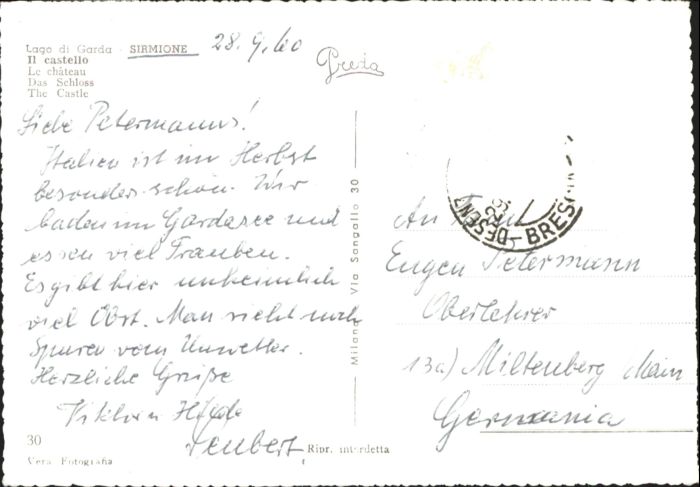 Lago di Garda - SIRMIONE 28.9.60
Il castello
Le château
Das Schloss
The Castle
Preda
Liebe Petermanns!
Italien ist im Herbst
besonders schön. Wir
baden im Gardasee und
essen viel Trauben.
Es gibt hier unheimlich
viel Obst. Man sieht noch
Spuren vom Unwetter.
Herzliche Grüße
Viktor Hilde
Neubert
30
Vera Fotografia
Ripr. interdetta
Milano Via Sangallo 30
DESENZ - BRESC
An Fam.
Eugen Petermann
Oberlehrer
13a) Miltenberg Main
Germania